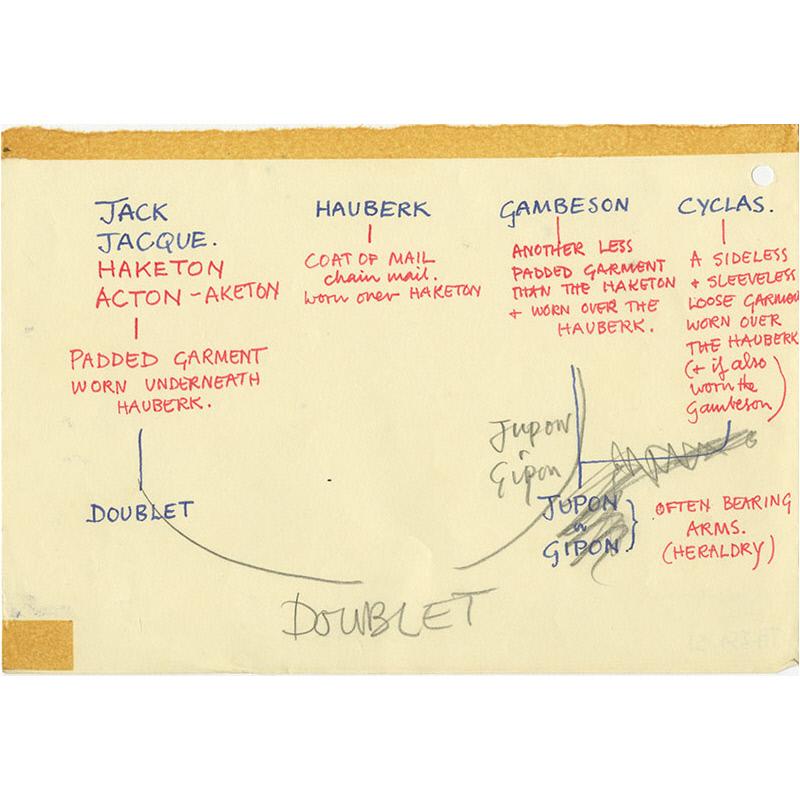 JACK
JACQUE.
HAKETON
ACTON - AKETON
PADDED GARMENT
WORN UNDERNEATH
HAUBERK.
DOUBLET
HAUBERK
COAT OF MAIL
chain mail.
worn over HAKETON
GAMBESON
ANOTHER LESS
PADDED GARMENT
THAN THE HAKETON
+ WORN OVER THE
HAUBERK.
CYCLAS.
A SIDELESS
+ SLEEVELESS
LOOSE GARMENT
WORN OVER
THE HAUBERK
(+ if also
worn the
Gambeson)
Jupon
Gipon
JUPON
or
GIPON
OFTEN BEARING
ARMS.
(HERALDRY)
DOUBLET